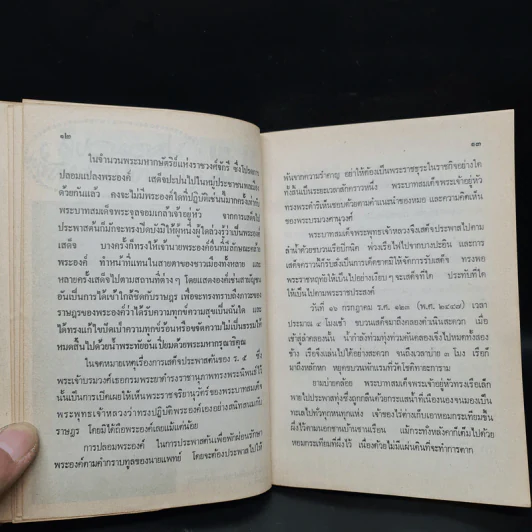 ๑๒
ในจำนวนพระมหากษัตริย์แห่งราชวงศ์จักรี ซึ่งโปรดการ
ปลอมแปลงพระองค์ เสด็จปะปนไปในหมู่ประชาชนพลเมือง
ด้วยกันแล้ว คงจะไม่มีพระองค์ใดที่ปฏิบัติเช่นนั้นมากครั้งเท่ากับ
พระบาทสมเด็จพระจุลจอมเกล้าเจ้าอยู่หัว จากการเสด็จ
ประพาสต้นก็มักจะทรงบิดบังมิให้ผู้หนึ่งผู้ใดล่วงรู้ว่าเป็นพระองค์
เสด็จ บางครั้งก็ทรงให้เจ้านายพระองค์อื่นที่มีลักษณะคล้าย
พระองค์ ทำหน้าที่แทนในสายตาของชาวเมืองทั้งหลาย และ
หลายครั้งเสด็จไปตามสถานที่ต่าง ๆ โดยแสดงองค์เช่นสามัญชน
อันเป็นการได้เข้าใกล้ชิดกับราษฎร เพื่อจะทรงทราบถึงภาวะของ
ราษฎรของพระองค์ว่าได้รับความทุกข์ความสุขเป็นนั้นใด และ
ได้ทรงแก้ไขบำบัดความทุกข์ร้อนหรือขจัดความไม่เป็นธรรมให้
หมดสิ้นไปด้วยน้ำพระทัยอันเปี่ยมด้วยพระมหากรุณาธิคุณ
ในจดหมายเหตุเรื่องการเสด็จประพาสต้นของ ร. ๕ ซึ่ง
พระเจ้าบรมวงศ์เธอกรมพระยาดำรงราชานุภาพทรงพระนิพนธ์ไว้
นั้นเป็นการเปิดเผยให้เห็นพระราชจริยานุวัตร์ของพระบาทสมเด็จ
พระพุทธเจ้าหลวงว่าทรงปฏิบัติพระองค์เองอย่างสนิทสนมกับ
ราษฎร โดยมิได้ถือพระองค์เลยแม้แต่น้อย
การปลอมพระองค์ ในการประพาสต้นเพื่อพักผ่อนรักษา
พระองค์ตามคำกราบทูลของนายแพทย์ โดยจะต้องประพาสไปให้
๑๓
พ้นจากความรำคาญ อย่าให้ต้องเป็นพระราชธุระในราชกิจอย่างใด
ทั้งสิ้นเป็นระยะเวลาสักคราวหนึ่ง พระบาทสมเด็จพระเจ้าอยู่หัว
ทรงพระดำริเห็นชอบด้วยตามคำแนะนำของหมอ และความคิดเห็น
ของพระบรมวงศานุวงศ์
พระบาทสมเด็จพระพุทธเจ้าหลวงจึงเสด็จประพาสไปตาม
ลำน้ำด้วยขบวนเรือปิกนิค พ่วงเรือไฟไปจากบางปะอิน และการ
เสด็จคราวนี้ก็รับสั่งเป็นการเด็ดขาดมิให้จัดการรับเสด็จ ทรงพอ
พระราชหฤทัยให้เป็นไปอย่างเงียบ ๆ จะเสด็จที่ใด ประทับที่ใด
ให้เป็นไปตามพระราชประสงค์
วันที่ ๑๖ กรกฎาคม ร.ศ. ๑๒๓ (พ.ศ. ๒๔๔๗) เวลา
ประมาณ ๔ โมงเช้า ขบวนเสด็จมาถึงคลองดำเนินสะดวก เมื่อ
เข้าสู่ลำคลองนั้น น้ำกำลังท่วมทุ่งท่วมคันคลองเข้าไปหมดทั้งสอง
ข้าง เรือจึงแล่นไปได้อย่างสะดวก จนถึงเวลาบ่าย ๓ โมง เรือก็
มาถึงหลักหก หยุดขบวนพักแรมที่วัดโชติทายการาม
ยามบ่ายคล้อย พระบาทสมเด็จพระเจ้าอยู่หัวทรงเรือเล็ก
พายไปประพาสทุ่งซึ่งถูกกลืนด้วยกระแสน้ำที่เนืองนองจนมองเป็น
ทะเลไปทั่วทุกหนทุกแห่ง เจ้าของไร่ต่างก็เอาหอมกระเทียมขึ้น
ผึ่งไว้ตามนอกชานบ้านชานเรือน แม้กระทั่งหลังคาก็เต็มไปด้วย
หอมกระเทียมที่ผึ่งไว้ เนื่องด้วยไม่มีแผ่นดินที่จะทำการตาก